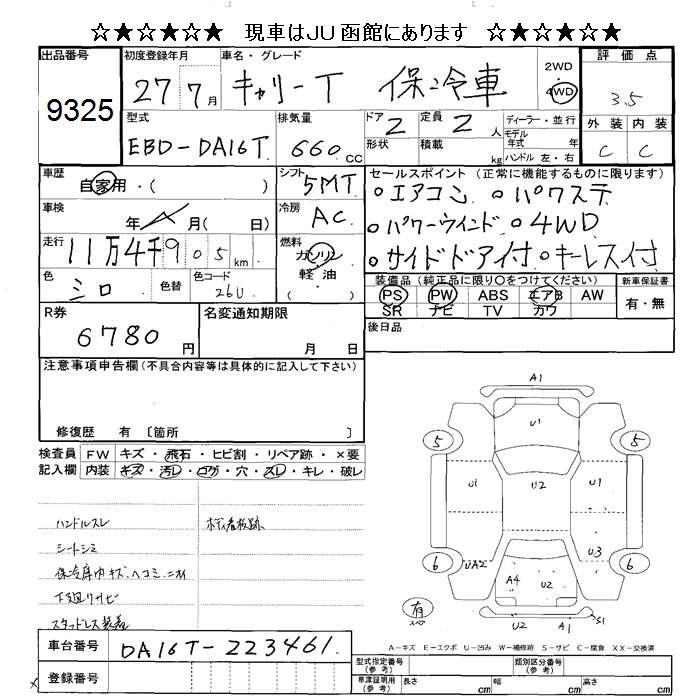 ☆★☆★☆★ 現車はJU函館にあります ☆★☆★☆★
出品番号 初度登録年月 車名・グレード 2WD 評価点
9325 27 7月 キャリーT 保冷車 4WD 3.5
型式 排気量 ドア 定員 ディーラー・並行 外装 内装
EBD-DA16T 660CC 2 2人 モデル年式 年 C C
形状 積載 kg ハンドル 左・右
車歴 自家用・( ) シフト 5MT セールスポイント(正常に機能するものに限ります)
車検 年 月( 日) 冷房 AC 。エアコン 。パワステ
。パワーウインド 。4WD
走行 11万4千905km 燃料 ガソリン 軽油 ( ) 。サイドドア付 。キーレス付
色 シロ 色替 色コード 26U 装備品(純正品に限り〇をつけてください) 新車保証書
PS PW ABS エアB AW 有・無
SR ナビ TV カワ
R券 6780円 名変通知期限 月 日 後日品
注意事項申告欄(不具合内容等は具体的に記入して下さい)
修復歴 有 〔箇所 〕
検査員 FW キズ・飛石・ヒビ割・リペア跡・×要
記入欄 内装 キズ・汚レ・コゲ・穴・スレ・キレ・破レ
ハンドルスレ ボディ看板跡
シートシミ
保冷庫内キズ、ヘコミ、
下廻りサビ
スタッドレス装着
A1
U1
5 5
U1 U2 U1
U3
6 UA2 6
A4 U2
有 スペ
U2 A1 S1
A-キズ E-エクボ U-凹み W-補修跡 S-サビ C-腐食 XX-交換済
車台番号 DA16T-223461
登録番号
型式指定番号(参考) 類別区分番号(参考)
車庫証明用(参考) 長さ cm 幅 cm 高さ cm